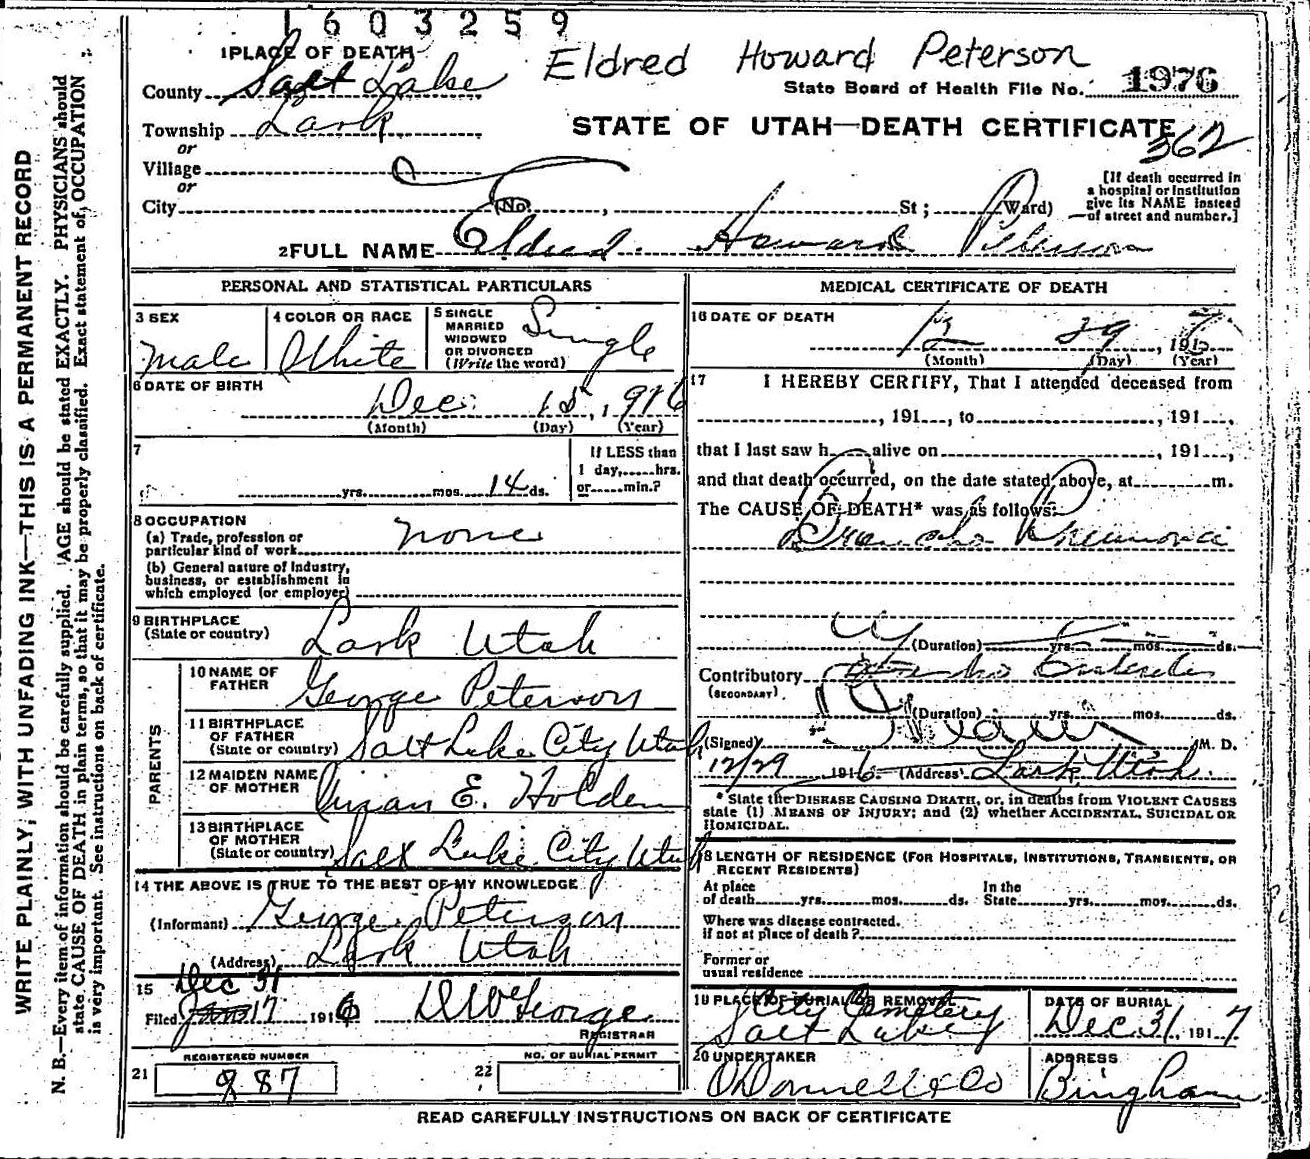 1603259
Eldred Howard Peterson
1 PLACE OF DEATH
County Salt Lake
State Board of Health File No. 1976
Township Lark
STATE OF UTAH—DEATH CERTIFICATE
362
or
Village
or
City (No. , St ; Ward)
[If death occurred in
a hospital or institution
give its NAME instead
of street and number.]
2 FULL NAME Eldred Howard Peterson
PERSONAL AND STATISTICAL PARTICULARS
3 SEX
male
4 COLOR OR RACE
White
5 SINGLE
MARRIED
WIDOWED
OR DIVORCED
(Write the word)
Single
6 DATE OF BIRTH
Dec 15, 1916
(Month) (Day) (Year)
7
yrs. mos. 14 ds.
If LESS than
1 day, hrs.
or min.?
8 OCCUPATION
(a) Trade, profession or
particular kind of work none
(b) General nature of Industry,
business, or establishment in
which employed (or employer)
9 BIRTHPLACE
(State or country) Lark Utah
PARENTS
10 NAME OF
FATHER George Peterson
11 BIRTHPLACE
OF FATHER
(State or country) Salt Lake City Utah
12 MAIDEN NAME
OF MOTHER Vivian E. Holden
13 BIRTHPLACE
OF MOTHER
(State or country) Salt Lake City Utah
14 THE ABOVE IS TRUE TO THE BEST OF MY KNOWLEDGE
(Informant) George Peterson
(Address) Lark Utah
15 Dec 31
Filed Jan 17 1916 D W George
REGISTRAR
REGISTERED NUMBER
21 987
NO. OF BURIAL PERMIT
22
MEDICAL CERTIFICATE OF DEATH
16 DATE OF DEATH
12 29, 191
(Month) (Day) (Year)
17 I HEREBY CERTIFY, That I attended deceased from
, 191 , to , 191 ,
that I last saw h alive on , 191 ,
and that death occurred, on the date stated above, at m.
The CAUSE OF DEATH* was as follows:
Broncho Pneumonia
(Duration) yrs. mos. ds.
Contributory
(SECONDARY)
(Duration) yrs. mos. ds.
(Signed) M. D.
12/29 1916 (Address) Lark Utah.
* State the DISEASE CAUSING DEATH, or, in deaths from VIOLENT CAUSES
state (1) MEANS OF INJURY; and (2) whether ACCIDENTAL, SUICIDAL OR
HOMICIDAL.
18 LENGTH OF RESIDENCE (FOR HOSPITALS, INSTITUTIONS, TRANSIENTS, OR
RECENT RESIDENTS)
At place
of death yrs. mos. ds.
In the
State yrs. mos. ds.
Where was disease contracted.
if not at place of death?
Former or
usual residence
19 PLACE OF BURIAL OR REMOVAL
City Cemetery
Salt Lake
DATE OF BURIAL
Dec 31, 1917
20 UNDERTAKER
O'Donnell & Co
ADDRESS
Bingham
READ CAREFULLY INSTRUCTIONS ON BACK OF CERTIFICATE
WRITE PLAINLY, WITH UNFADING INK—THIS IS A PERMANENT RECORD
N. B.—Every item of information should be carefully supplied. AGE should be stated EXACTLY. PHYSICIANS should
state CAUSE OF DEATH in plain terms, so that it may be properly classified. Exact statement of OCCUPATION
is very important. See instructions on back of certificate.